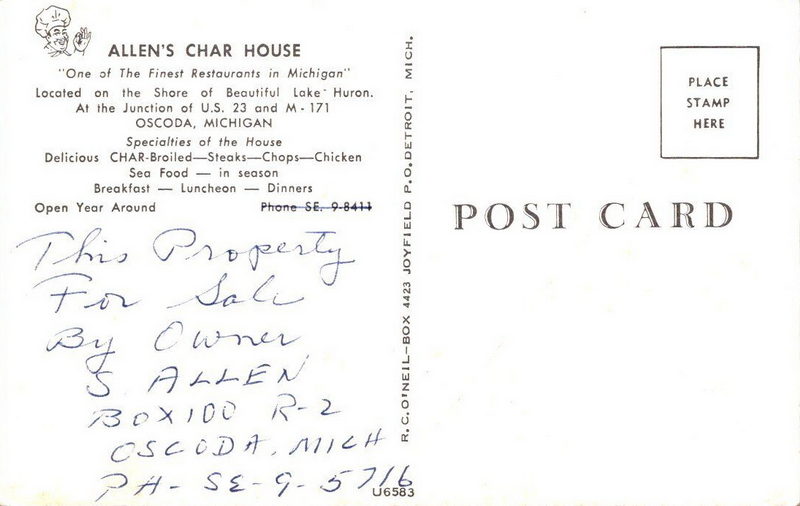 ALLEN'S CHAR HOUSE
"One of The Finest Restaurants in Michigan"
Located on the Shore of Beautiful Lake Huron.
At the Junction of U.S. 23 and M-171
OSCODA, MICHIGAN
Specialties of the House
Delicious CHAR-Broiled—Steaks—Chops—Chicken
Sea Food — in season
Breakfast — Luncheon — Dinners
Open Year Around Phone SE. 9-8411
This Property
For Sale
By Owner
S ALLEN
BOX 100 R-2
OSCODA, MICH
PH- SE-9-5716
R.C. O'NEIL—BOX 4423 JOYFIELD P.O. DETROIT, MICH.
U6583
PLACE
STAMP
HERE
POST CARD